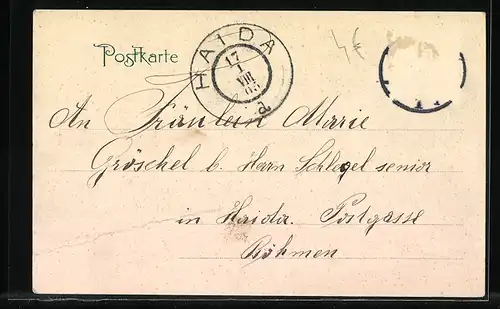 Postkarte
HAIDA
17
1
VIII
05
a
4€
An Fräulein Marie
Gröschel b. Herrn Schlegel senior
in Haida. Postgasse
Böhmen